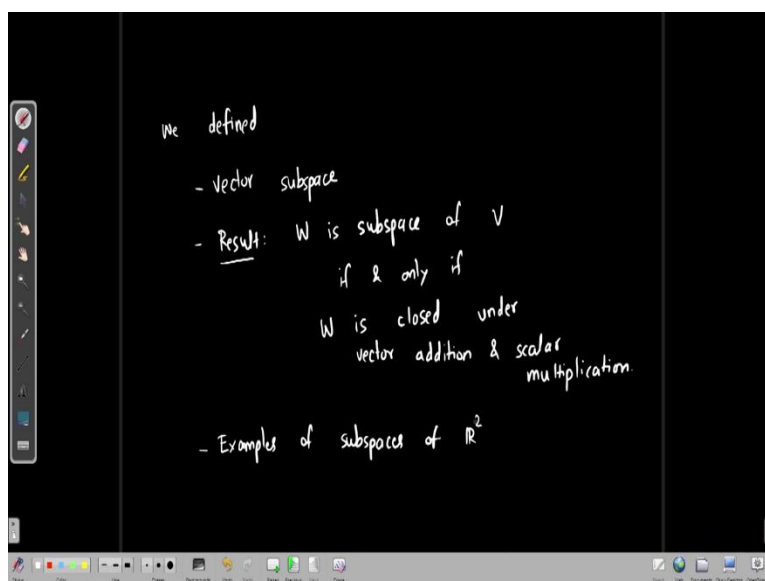 We defined
- Vector subspace
- Result: W is subspace of V
if & only if
W is closed under
vector addition & scalar
multiplication.
- Examples of subspaces of ℝ²